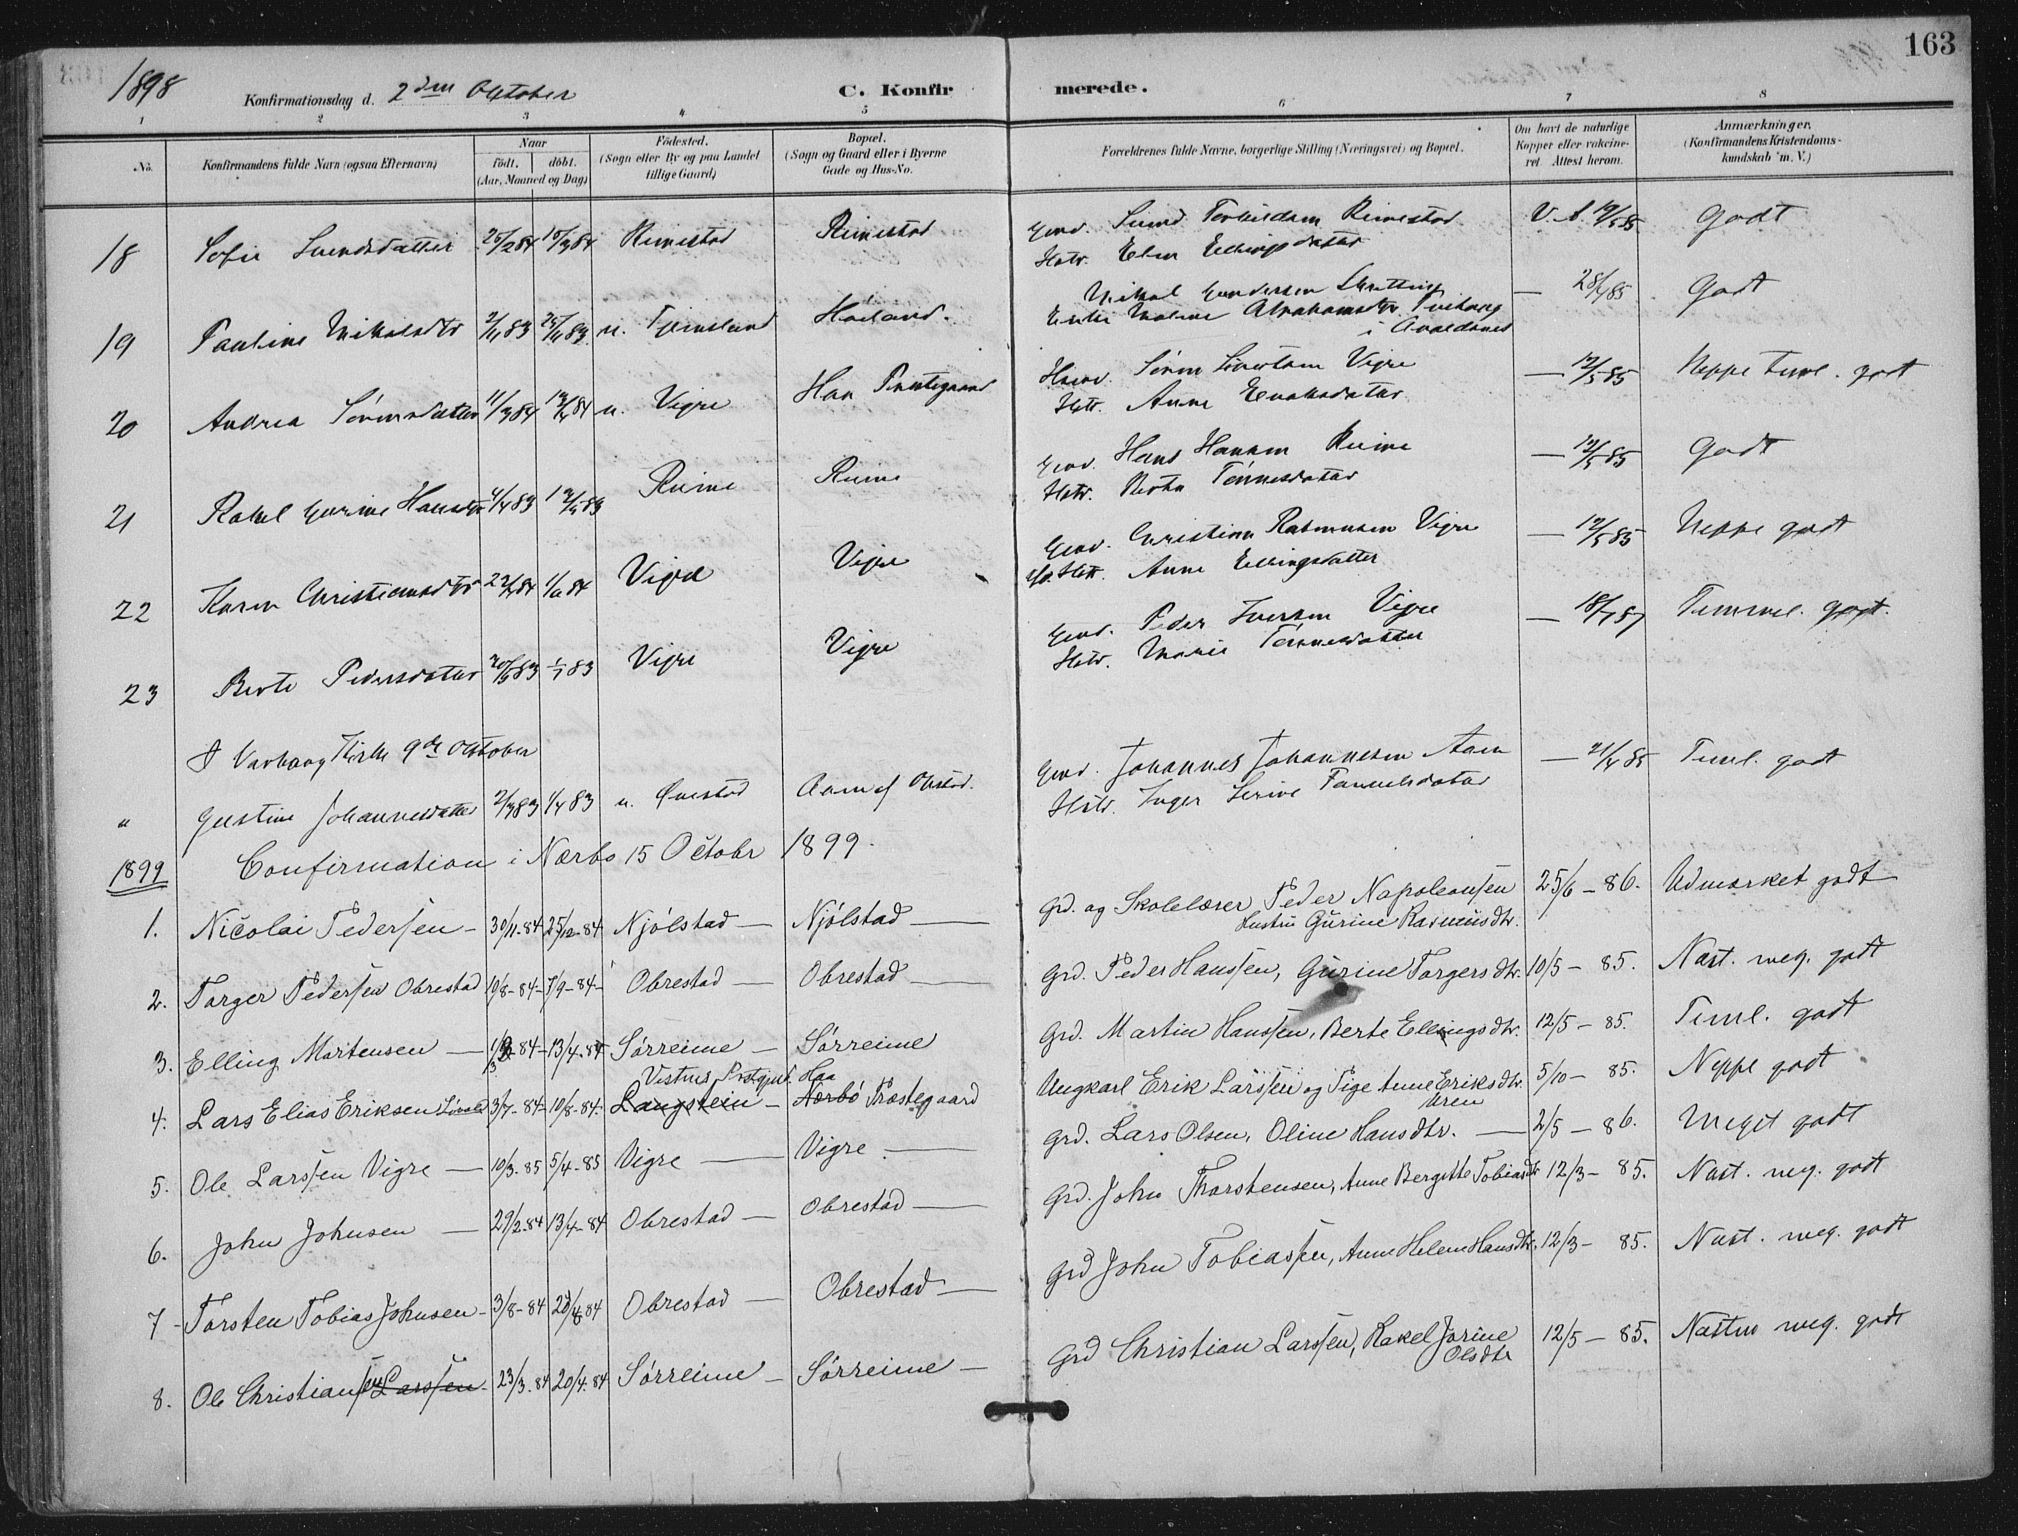 163
1898
Konfirmationsdag d. 2den Oktober
C. Konfirmerede.
1 2 3 4 5 6 7 8
No.
Konfirmandens fulde Navn (ogsaa Efternavn)
Naar
født. døbt.
(Aar, Maaned og Dag)
Fødested.
(Sogn eller By og paa Landet
tillige Gaard)
Bopæl.
(Sogn og Gaard eller i Byerne
Gade og Hus-No.
Forældrenes fulde Navne, borgerlige Stilling (Næringsvei) og Bopæl.
Om havt de naturlige
Kopper eller vakcine-
ret Attest herom.
Anmærkninger.
(Konfirmandens Kristendoms-
kundskab m. V.)
18 Sofie Svendsdatter 25/2 84 Rimestad Rimestad Svend Torkildsen Rimestad V. A. 12/5 85 Godt
Hstr. Elen Ellingsdatter
19 Pauline Nikolsdtr 2/11 83 25/11 83 u. Høiland. Nikol Gundersen — 28/4 85 Godt
Malene Abrahamsdtr
i Avaldsnes
20 Andrea Sørensdatter 11/3 84 13/4 84 u. Vigre Haa Præstegaard Søren Sivertsen Vigre — 12/5 85 Neppe Teml. godt
Hstr. Anne Enoksdatter
21 Rakel Gurine Hansdtr 4/4 83 Reime Reime Hans Hansen Reime — 12/5 85 Godt
Hstr. Berta Tønnesdatter
22 Karen Christiansdtr 84 84 Vigre Vigre Christian Rasmussen Vigre — 12/5 85 Neppe godt
Hstr. Anne Ellingsdatter
23 Berte Pedersdatter 83 1/7 83 Vigre Vigre Peder Iversen Vigre — 18/7 87 Temmel. godt.
Hstr. Marie Tønnesdatter
I Varhaug Kirke 9de Oktober
" Gustine Johannesdatter 2/3 83 1/4 83 u. Obrestad. Johannes Johannesen Aam — 21/4 85 Teml. godt
Hstr. Inger Serine
1899 Confirmation i Nærbø 15 Octobr 1899.
1. Nicolai Pedersen — 30/11-84 25/12-84 Njølstad — Njølstad — Grd. og Skolelærer Peder Napoleonsen 25/6 — 86. Udmærket godt
Hustru Gurine Rasmusdtr.
2. Torger Pedersen Obrestad 10/8-84- 7/9-84- Obrestad — Obrestad — Grd. Peder Hanssen, Gurine Torgersdtr. 10/5 — 85. Næst. meg. godt
3. Elling Mortensen — 84- 13/4-84 Sørreime — Sørreime Grd. Martin Hanssen, Berte Ellingsdtr. 12/5 — 85. Teml. godt
4. Lars Elias Eriksen 3/7-84- 10/8-84- Langstein — Haa Nærbø Præstegaard Ungkarl Erik Larssen og Pige Anne Eriksdtr. 5/10 — 85. Neppe godt
5. Ole Larssen Vigre — 10/3-85 5/4-85 Vigre — Vigre — Grd. Lars Olsen, Oline Hansdtr. — 2/5 — 86. Meget godt
6. John Johnsen — 29/2-84 13/4-84 Obrestad — Obrestad — Grd. John Thorstensen, Anne Bergitte Tobiasdtr 12/3 — 85. Næst. meg. godt
7 - Torsten Tobias Johnsen - 3/8-84 84 Obrestad — Obrestad — Grd John Tobiassen, Anne Helene Hansdtr. 12/3 — 85. Næst. meg. godt
8. Ole Christiansen Larssen 23/3-84 20/4-84 Sørreime — Sørreime — Grd Christian Larssen, Rakel Jorine Olsdtr 12/5 — 85. Næsten meg. godt